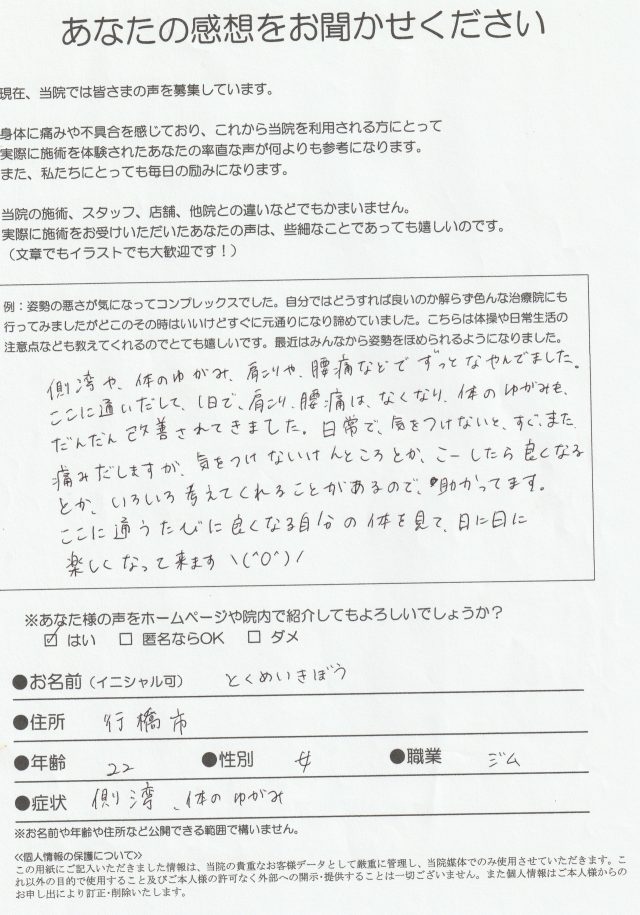 あなたの感想をお聞かせください
現在、当院では皆さまの声を募集しています。
身体に痛みや不具合を感じており、これから当院を利用される方にとって
実際に施術を体験されたあなたの率直な声が何よりも参考になります。
また、私たちにとっても毎日の励みになります。
当院の施術、スタッフ、店舗、他院との違いなどでもかまいません。
実際に施術をお受けいただいたあなたの声は、些細なことであっても嬉しいのです。
（文章でもイラストでも大歓迎です！）
例：姿勢の悪さが気になってコンプレックスでした。自分ではどうすれば良いのか解らず色んな治療院にも
行ってみましたがどこのその時はいいけどすぐに元通りになり諦めていました。こちらは体操や日常生活の
注意点なども教えてくれるのでとても嬉しいです。最近はみんなから姿勢をほめられるようになりました。
側湾や、体のゆがみ、肩こりや、腰痛などで ずっとなやんでました。
ここに通いだして、1日で、肩こり、腰痛は、なくなり、体のゆがみも、
だんだん改善されてきました。日常で、気をつけないと、すぐ、また
痛みだしますが、気をつけないけんところとか、こーしたら良くなる
とか、いろいろ考えてくれることがあるので、助かってます。
ここに通うたびに良くなる自分の体を見て、日に日に
楽しくなって来ます ヽ(^O^)ノ
※あなた様の声をホームページや院内で紹介してもよろしいでしょうか？
☑ はい □ 匿名ならOK □ ダメ
●お名前（イニシャル可） とくめいきぼう
●住所 行橋市
●年齢 22 ●性別 女 ●職業 ジム
●症状 側湾、体のゆがみ
※お名前や年齢や住所など公開できる範囲で構いません。
≪個人情報の保護について≫
この用紙にご記入いただきました情報は、当院の貴重なお客様データとして厳重に管理し、当院媒体でのみ使用させていただきます。こ
れ以外の目的で使用すること及びご本人様の許可なく外部への開示・提供することは一切ございません。また個人情報はご本人様からの
お申し出により訂正・削除いたします。